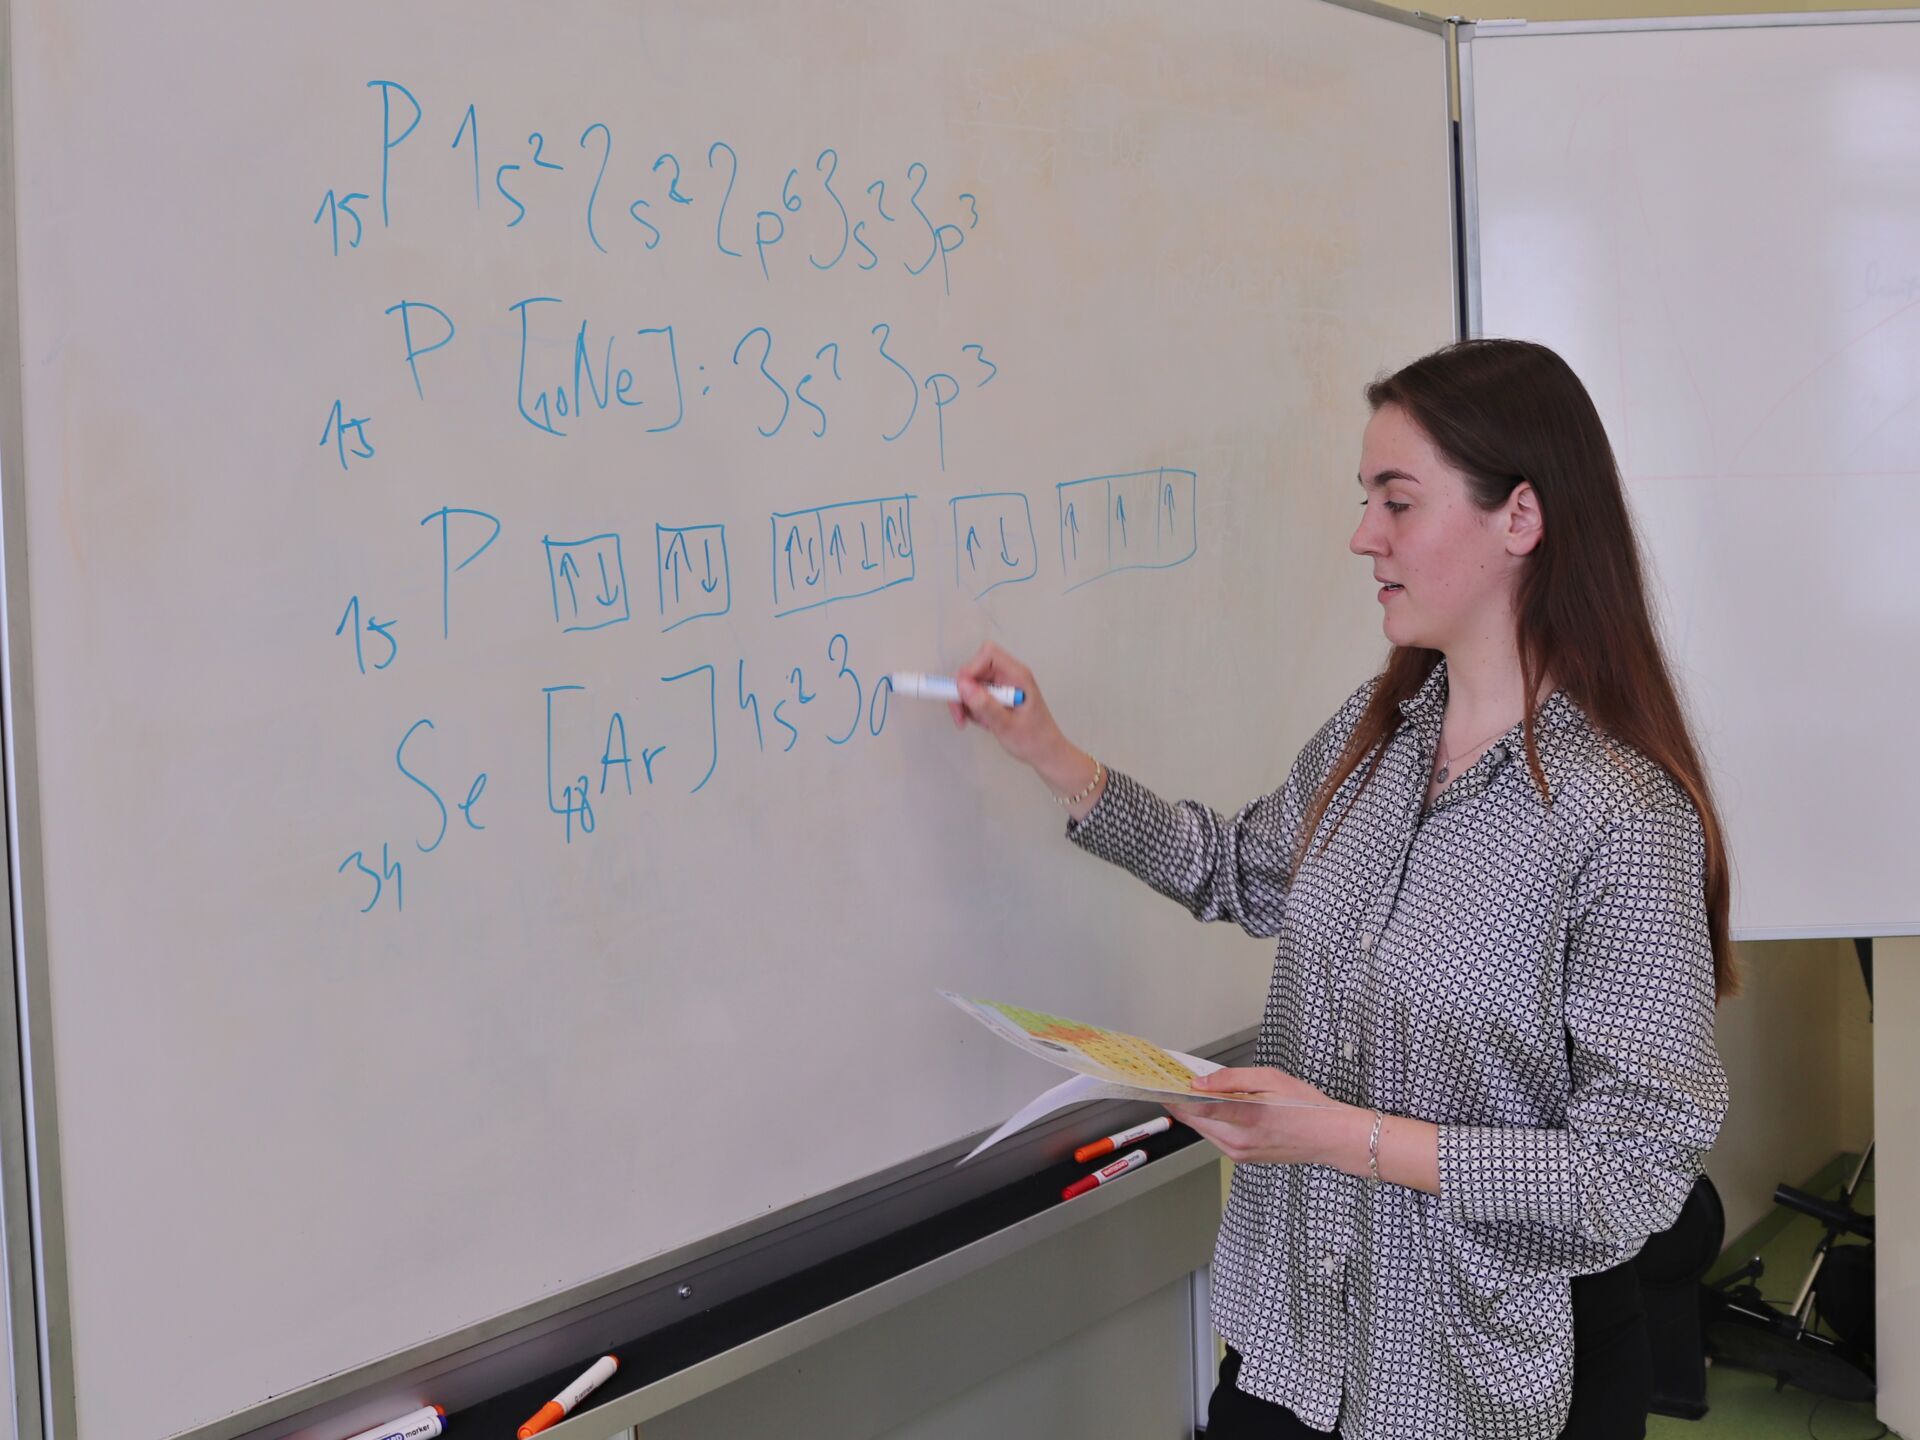 ₁₅P 1s² 2s² 2p⁶ 3s² 3p³
₁₅P [₁₀Ne]: 3s² 3p³
₁₅P ↑↓ ↑↓ ↑↓ ↑↓ ↑↓ ↑↓ ↑ ↑ ↑
₃₄Se [₁₈Ar] 4s² 3
marker